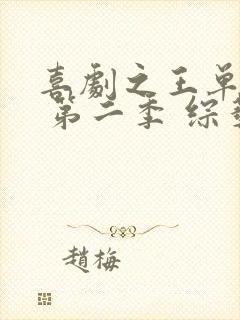 喜劇之王單
第二季 綜
趙梅